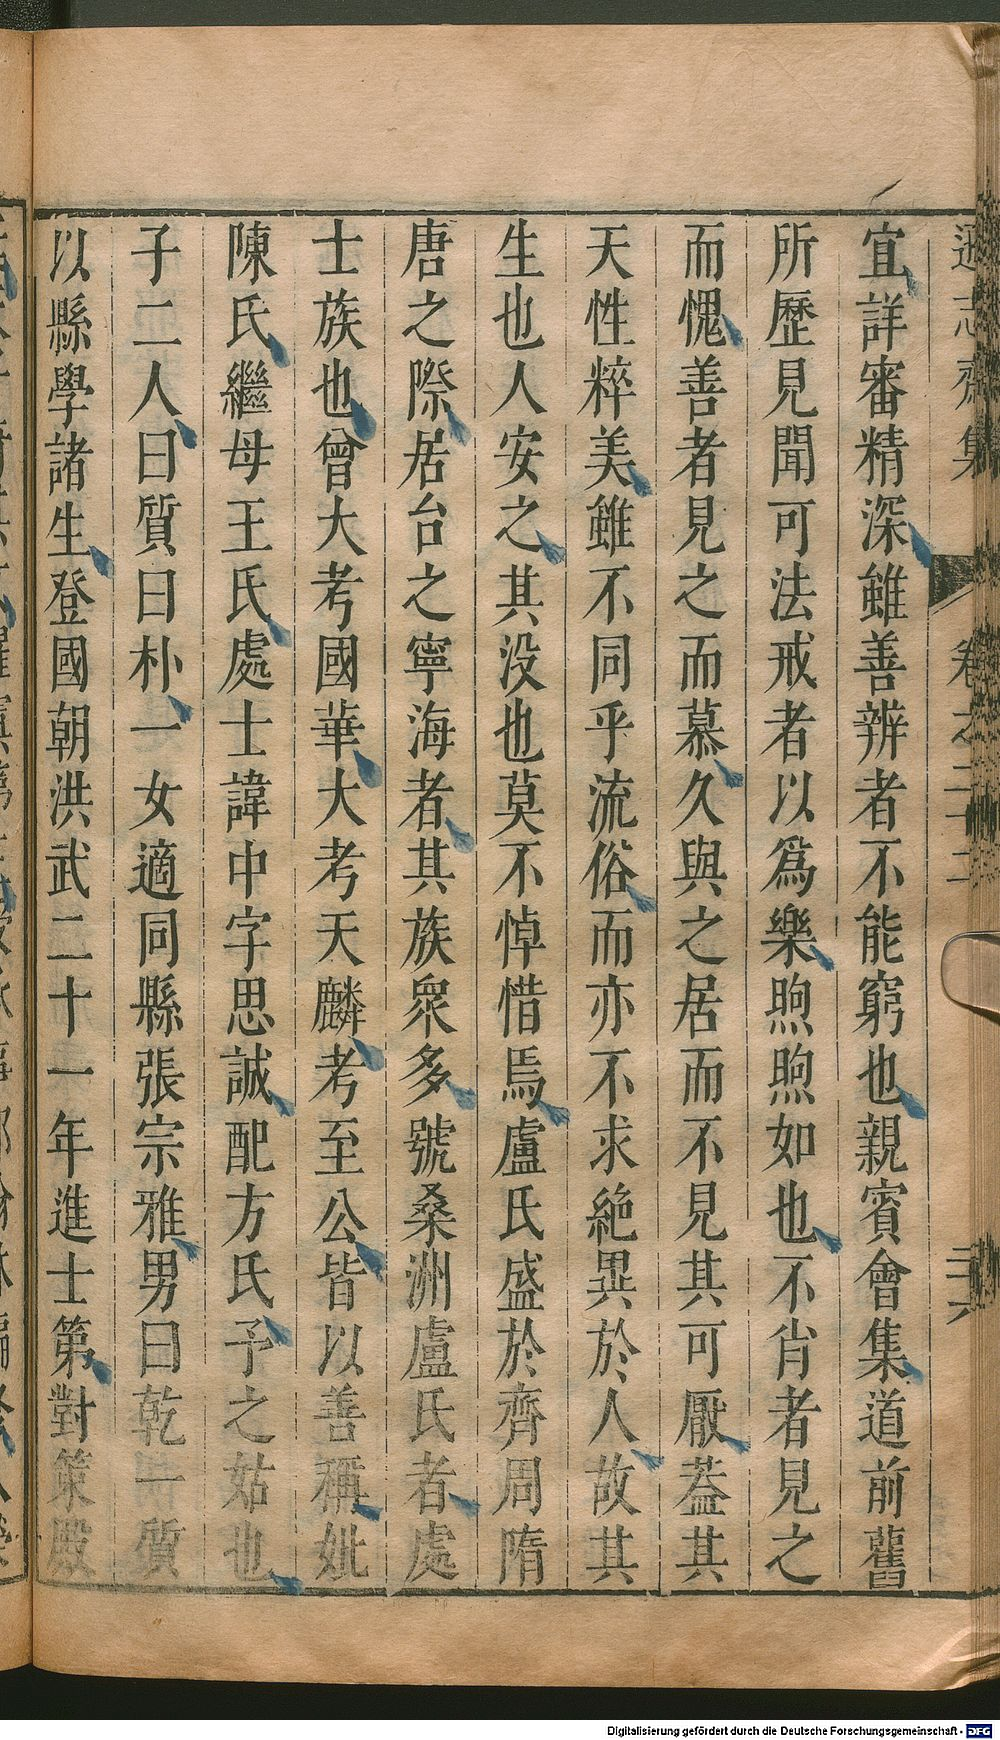 遜志齋集 卷之二十二 二十六
宜詳審精深雖善辨者不能窮也親賓會集道前舊
所歷見聞可法戒者以爲樂煦煦如也不肖者見之
而愧善者見之而慕久與之居而不見其可厭葢其
天性粹美雖不同乎流俗而亦不求絶異於人故其
生也人安之其没也莫不悼惜焉盧氏盛於齊周隋
唐之際居台之寧海者其族衆多號桑洲盧氏者處
士族也曾大考國華大考天麟考至公皆以善稱妣
陳氏繼母王氏處士諱中字思誠配方氏予之姑也
子二人曰質曰朴一女適同縣張宗雅男曰乾一質
以縣學諸生登國朝洪武二十一年進士第對策殿
Digitalisierung gefördert durch die Deutsche Forschungsgemeinschaft - DFG